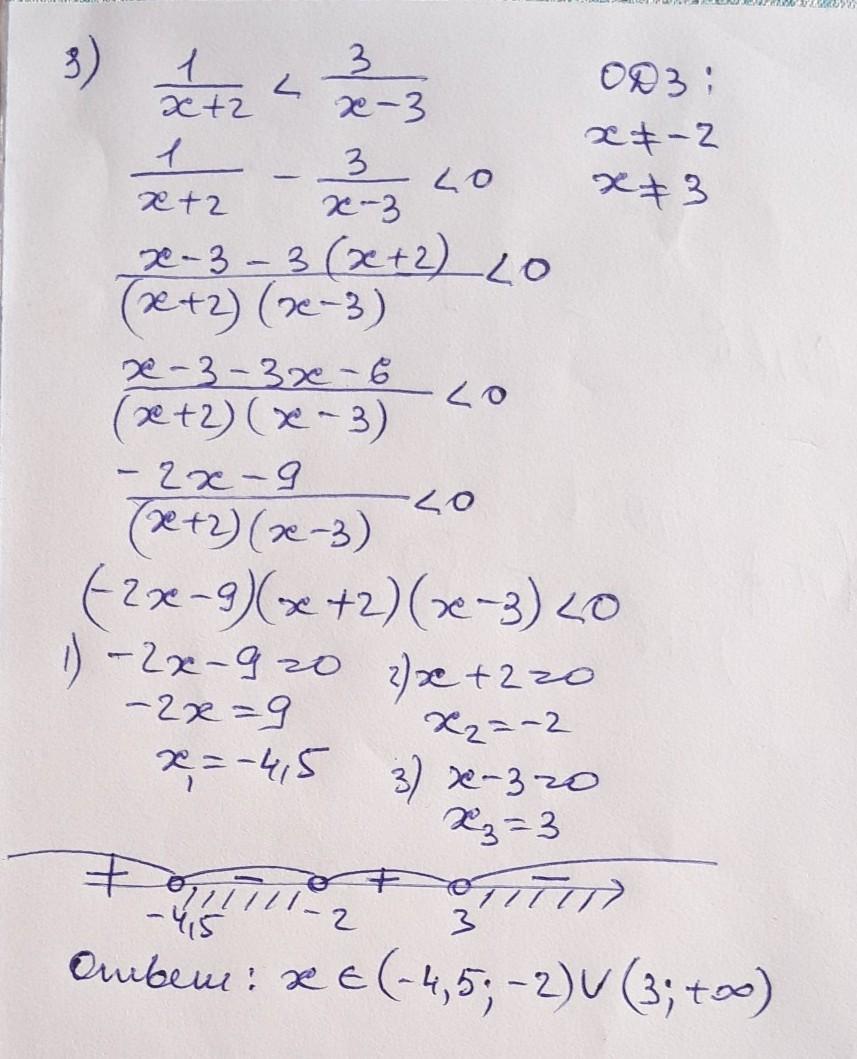 3) 1/(x+2) < 3/(x-3) ОДЗ:
x≠-2
1/(x+2) - 3/(x-3) <0 x≠3
(x-3-3(x+2))/((x+2)(x-3)) <0
(x-3-3x-6)/((x+2)(x-3)) <0
(-2x-9)/((x+2)(x-3)) <0
(-2x-9)(x+2)(x-3)<0
1) -2x-9=0 2) x+2=0
-2x=9 x₂=-2
x₁=-4,5 3) x-3=0
x₃=3
+ - + -
-4,5 -2 3
Ответ: x∈(-4,5;-2)∪(3;+∞)